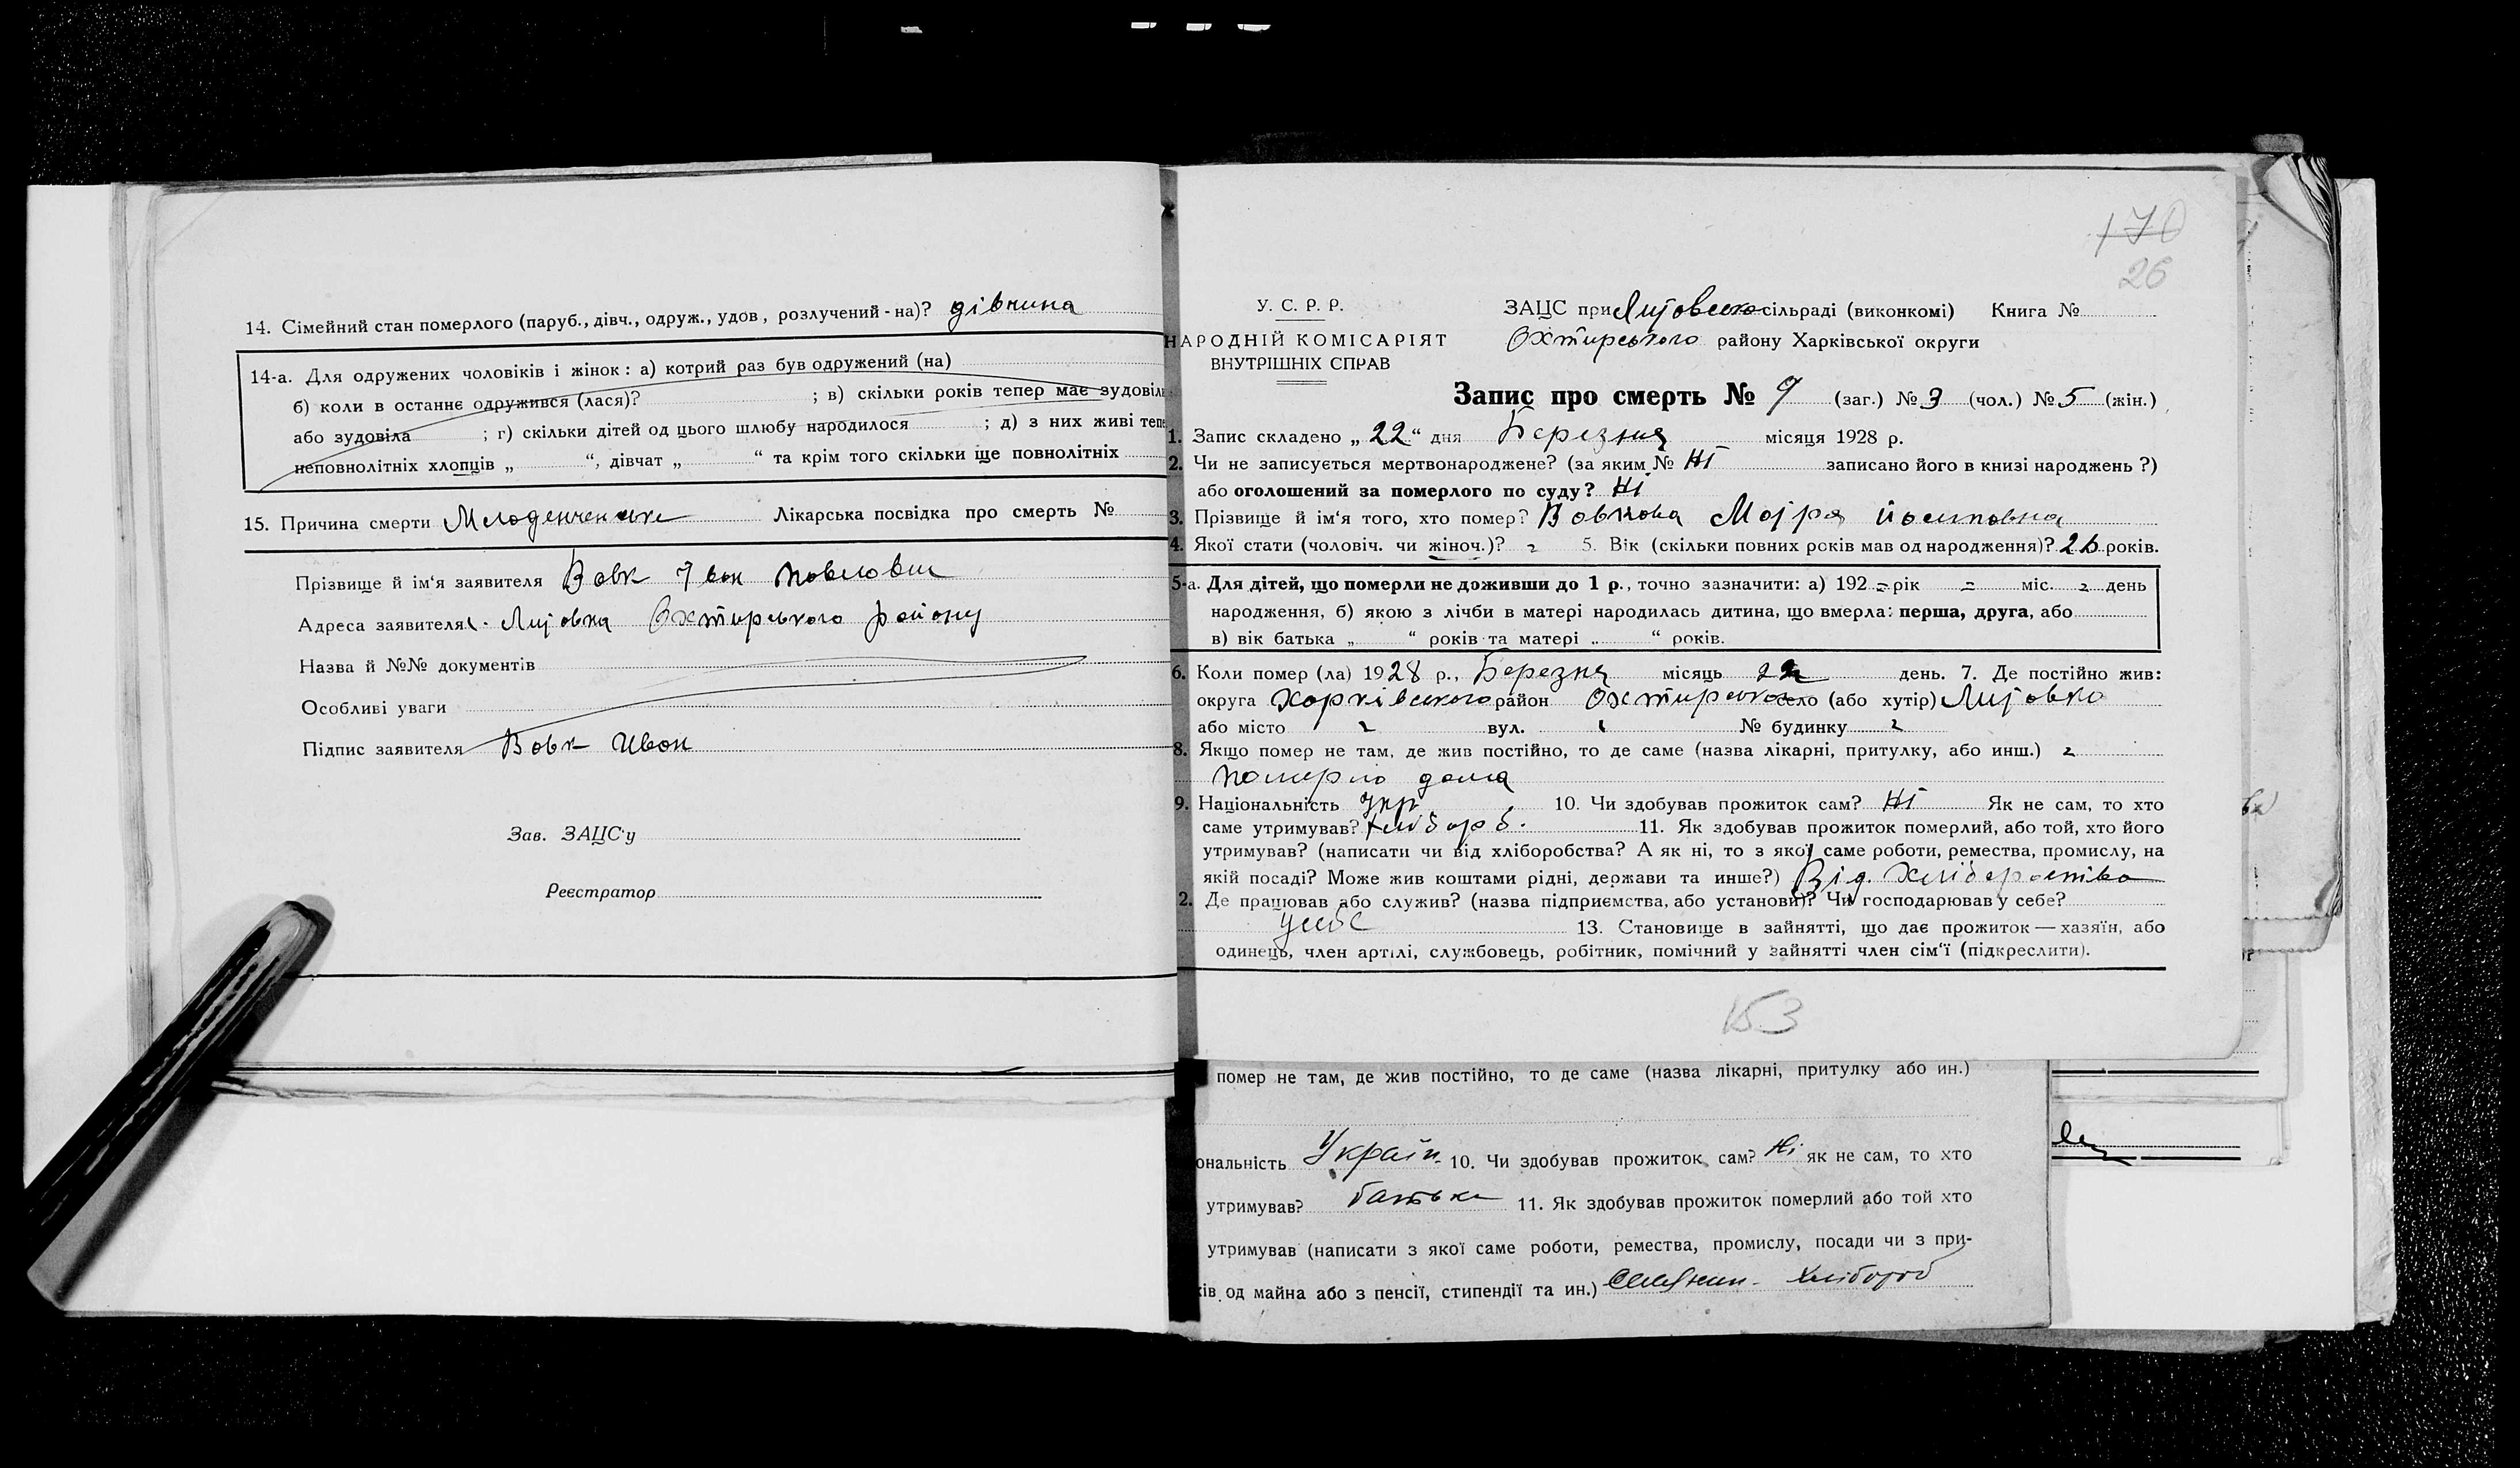 14. Сімейний стан померлого (паруб., дівч., одруж., удов, розлучений - на)? дівчина
14-а. Для одружених чоловіків і жінок: а) котрий раз був одружений (на)
б) коли в останнє одружився (лася)? ; в) скільки років тепер має зудовіл
або зудовіла ; г) скільки дітей од цього шлюбу народилося ; д) з них живі теп
неповнолітніх хлопців „ “, дівчат „ “ та крім того скільки ще повнолітніх
15. Причина смерти Лікарська посвідка про смерть №
Прізвище й ім‘я заявителя Вовк Іван Павлович
Адреса заявителя Охтирського району
Назва й №№ документів
Особливі уваги
Підпис заявителя Вовк Иван
Зав. ЗАЦС‘у
Реєстратор
170
26
У. С. Р. Р.
НАРОДНІЙ КОМІСАРІЯТ
ВНУТРІШНІХ СПРАВ
ЗАЦС при сільраді (виконкомі) Книга №
Охтирського району Харківської округи
Запис про смерть № 9 (заг.) № 3 (чол.) № 5 (жін.)
1. Запис складено „ 22 “ дня Березня місяця 1928 р.
2. Чи не записується мертвонароджене? (за яким № Ні записано його в книзі народжень ?)
або оголошений за померлого по суду? Ні
3. Прізвище й ім‘я того, хто помер? Вовкова
4. Якої стати (чоловіч. чи жіноч.)? 5. Вік (скільки повних років мав од народження)? років.
5-а. Для дітей, що померли не доживши до 1 р., точно зазначити: а) 192 рік міс. день
народження, б) якою з лічби в матері народилась дитина, що вмерла: перша, друга, або
в) вік батька „ “ років та матері „ “ років.
6. Коли помер (ла) 1928 р., Березня місяць 22 день. 7. Де постійно жив:
округа Харківського район Охтирського село (або хутір)
або місто вул. № будинку
8. Якщо помер не там, де жив постійно, то де саме (назва лікарні, притулку, або инш.)
померло дома
9. Національність Укр 10. Чи здобував прожиток сам? Ні Як не сам, то хто
саме утримував? хлібороб. 11. Як здобував прожиток померлий, або той, хто його
утримував? (написати чи від хліборобства? А як ні, то з якої саме роботи, ремества, промислу, на
якій посаді? Може жив коштами рідні, держави та инше?) Від. Хліборобства
2. Де працював або служив? (назва підприємства, або установи)? Чи господарював у себе?
у себе 13. Становище в зайнятті, що дає прожиток — хазяїн, або
одинець, член артілі, службовець, робітник, помічний у зайнятті член сім‘ї (підкреслити).
153
помер не там, де жив постійно, то де саме (назва лікарні, притулку або ин.)
ональність Україн. 10. Чи здобував прожиток сам? Ні як не сам, то хто
утримував? батьки 11. Як здобував прожиток померлий або той хто
утримував (написати з якої саме роботи, ремества, промислу, посади чи з при-
ків од майна або з пенсії, стипендії та ин.) Селянин - хлібороб